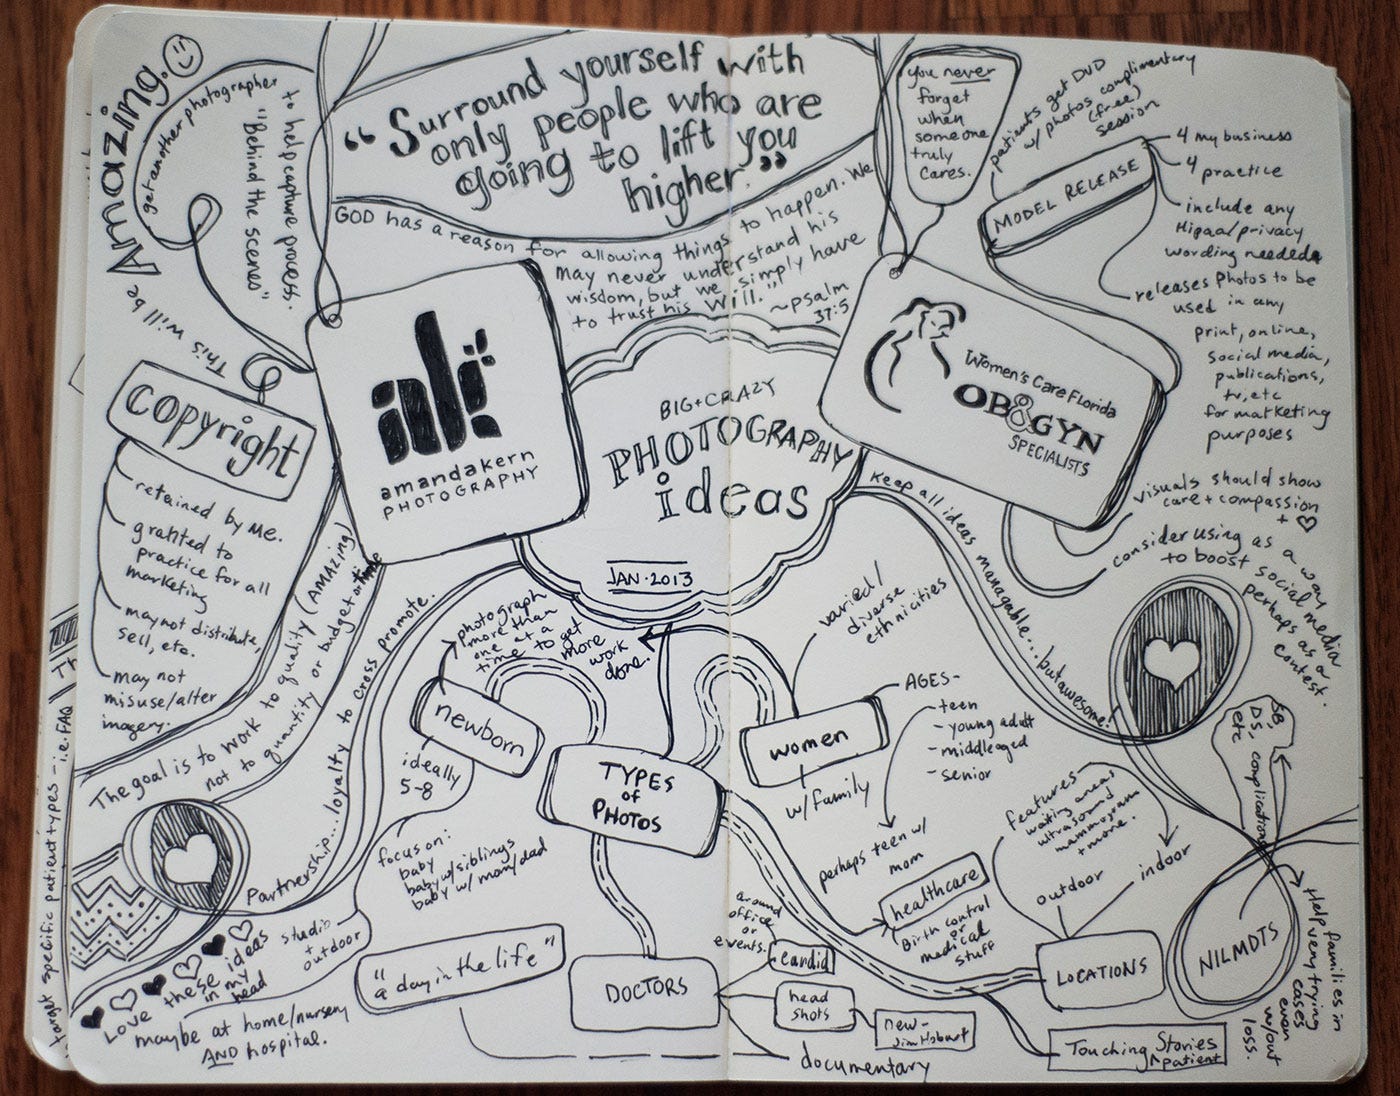 "Surround yourself with
only people who are
going to lift you
higher."
GOD has a reason for allowing things to happen. We
may never understand his
wisdom, but we simply have
to trust his will."
~psalm
37:5
This will be Amazing.
get another photographer
to help capture process.
"Behind the
scenes"
you never
forget
when
someone
truly
cares.
patients get DVD
w/ photos complimentary
(free)
session
MODEL RELEASE
4 my business
4 practice
include any
Hipaa/privacy
wording needed
releases photos to be
used in any
print, online,
social media,
publications,
tv, etc
for marketing
purposes
copyright
retained by me.
granted to
practice for all
marketing
may not distribute,
sell, etc.
may not
misuse/alter
imagery.
amandakern
PHOTOGRAPHY
BIG + CRAZY
PHOTOGRAPHY
ideas
JAN. 2013
Women's Care Florida
OB&GYN
SPECIALISTS
visuals should show
care + compassion
+
consider using as a way
to boost social media
perhaps as a
contest.
Keep all ideas managable... but awesome!
The goal is to work to quality (AMAZING)
not to quantity or budget or time
Partnership... loyalty to cross promote.
photograph
more than
one at a
time to get
more
work
done.
newborn
ideally
5-8
focus on:
baby
baby w/ siblings
baby w/ mom/dad
studio
+
outdoor
TYPES
of
PHOTOS
women
varied/
diverse
ethnicities
AGES-
- teen
- young adult
- middleaged
- senior
w/ family
perhaps teen w/
mom
healthcare
Birth control
or
medical
stuff
features-
waiting areas
ultrasound
mammogram
+ more.
outdoor
indoor
LOCATIONS
SB,
DS,
etc
complications
NILMDTS
Help families in
very trying
cases
even
w/out
loss.
Touching Stories
patient
DOCTORS
around
office
or
events.
candid
head
shots
new-
Jim Hobart
documentary
"a day in the life"
Love these ideas
in my
head
maybe at home/nursery
AND hospital.
target specific patient types - i.e. FAQ
Th